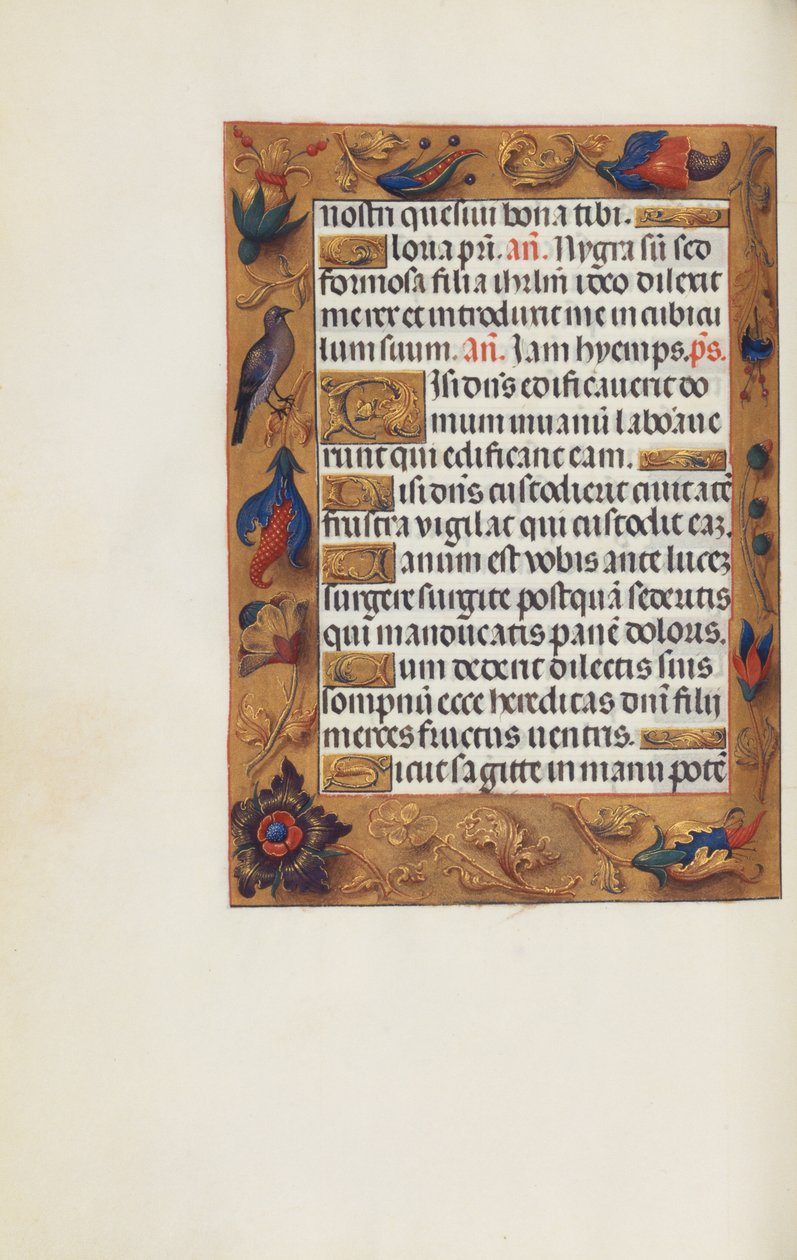 nostri quesiui bona tibi.
Gloria pri̅. an̅. Nygra su̅ sed
formosa filia ihrlm̅ ideo dilexit
me rex et introduxit me in cubicu
lum suum. An̅. Iam hyemps. ps̅.
Nisi dn̅s edificauerit do
mum inuanu̅ laboraue
runt qui edificant eam.
Nisi dn̅s custodierit ciuitate̅
frustra vigilat qui custodit eaz.
Vanum est vobis ante lucez
surgere surgite postqua̅ sederitis
qui manducatis pane̅ doloris.
Cum dederit dilectis suis
sompnu̅ ecce hereditas dn̅i filij
merces fructus uentris.
Sicut sagitte in manu pote̅